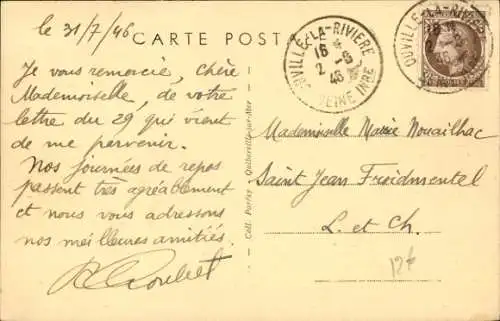 le 31/7/46
CARTE POST
OUVILLE-LA-RIVIERE
16 H
2 - 8
46
SEINE INFRE
OUVILLE-LA-RIVIERE
Je vous remercie, chère
Mademoiselle, de votre
lettre du 29 qui vient
de me parvenir.
Nos journées de repos
passent très agréablement
et nous vous adressons
nos meilleures amitiés.
Coll. Portay - Quiberville-sur-Mer
Mademoiselle Marie Nouailhac
Saint Jean Froidmentel
L. et Ch.